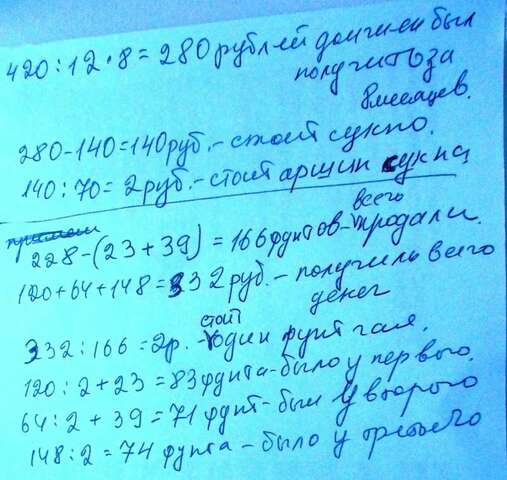 420:12•8=280рублей должен был
получить за
8 месяцев.
280-140=140руб.- стоит сукно.
140:70=2руб.- стоит аршин сукна
всего
228-(23+39)=166фунтов-продали.
120+64+148=332руб.- получили всего
денег
стоит
332:166=2р.-один фунт чая.
120:2+23=83фунта-было у первого.
64:2+39=71фунт-был у второго
148:2=74 фунта-было у третьего